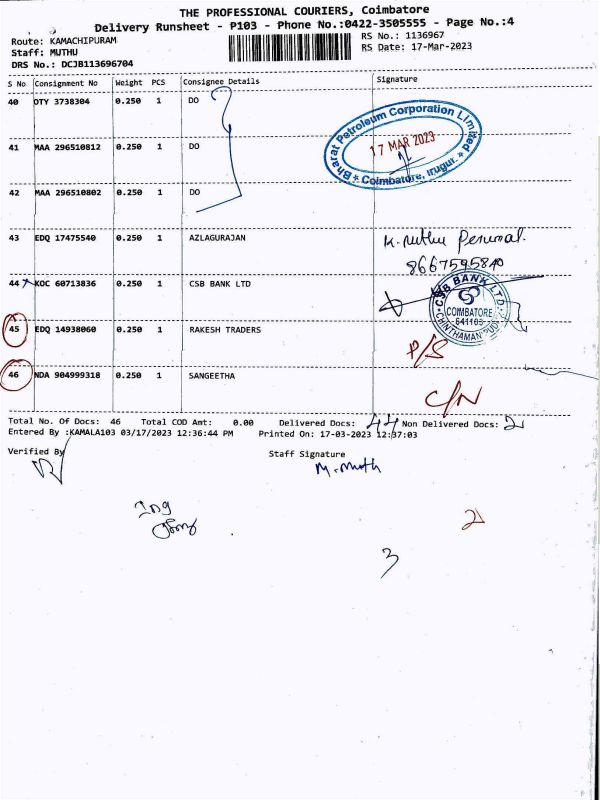 THE PROFESSIONAL COURIERS, Coimbatore
Delivery Runsheet - P103 - Phone No.:0422-3505555 - Page No.:4
Route: KAMACHIPURAM
Staff: MUTHU
DRS No.: DCJB113696704
RS No.: 1136967
RS Date: 17-Mar-2023
S No Consignment No Weight PCS Consignee Details Signature
40 OTY 3738304 0.250 1 DO
41 MAA 296510812 0.250 1 DO
42 MAA 296510802 0.250 1 DO
Bharat Petroleum Corporation Limited
17 MAR 2023
* Coimbatore, Irugur. *
43 EDQ 17475540 0.250 1 AZLAGURAJAN
K. Muthu Perumal.
8667595840
44 KOC 60713836 0.250 1 CSB BANK LTD
CSB BANK LTD
COIMBATORE
641103
45 EDQ 14938060 0.250 1 RAKESH TRADERS
P/S
46 NDA 904999318 0.250 1 SANGEETHA
C/N
Total No. Of Docs: 46 Total COD Amt: 0.00 Delivered Docs: 44 Non Delivered Docs: 2
Entered By :KAMALA103 03/17/2023 12:36:44 PM Printed On: 17-03-2023 12:37:03
Verified By
Staff Signature
M. Muth
2
3